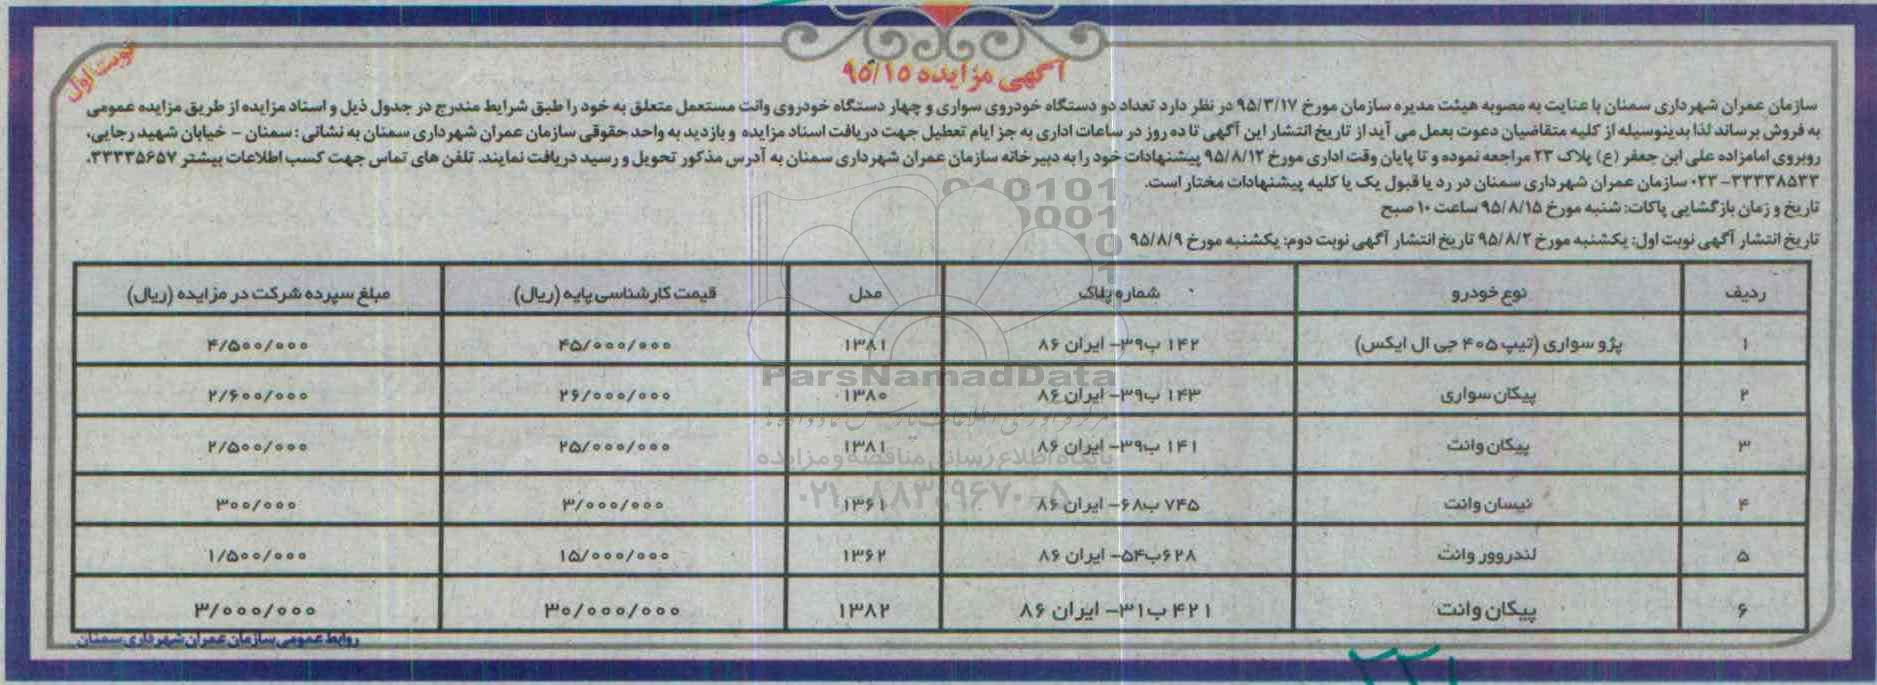 نوبت اول
آگهی مزایده ۹۵/۱۵
سازمان عمران شهرداری سمنان با عنایت به مصوبه هیئت مدیره سازمان مورخ ۹۵/۳/۱۷ در نظر دارد تعداد دو دستگاه خودروی سواری و چهار دستگاه خودروی وانت مستعمل متعلق به خود را طبق شرایط مندرج در جدول ذیل و اسناد مزایده از طریق مزایده عمومی
به فروش برساند لذا بدینوسیله از کلیه متقاضیان دعوت بعمل می آید از تاریخ انتشار این آگهی تا ده روز در ساعات اداری به جز ایام تعطیل جهت دریافت اسناد مزایده و بازدید به واحد حقوقی سازمان عمران شهرداری سمنان به نشانی : سمنان - خیابان شهید رجایی،
روبروی امامزاده علی ابن جعفر (ع) پلاک ۲۳ مراجعه نموده و تا پایان وقت اداری مورخ ۹۵/۸/۱۲ پیشنهادات خود را به دبیرخانه سازمان عمران شهرداری سمنان به آدرس مذکور تحویل و رسید دریافت نمایند. تلفن های تماس جهت کسب اطلاعات بیشتر ۳۳۳۳۵۶۵۷،
۳۳۳۳۸۵۳۳-۰۲۳ سازمان عمران شهرداری سمنان در رد یا قبول یک یا کلیه پیشنهادات مختار است.
تاریخ و زمان بازگشایی پاکات: شنبه مورخ ۹۵/۸/۱۵ ساعت ۱۰ صبح
تاریخ انتشار آگهی نوبت اول: یکشنبه مورخ ۹۵/۸/۲ تاریخ انتشار آگهی نوبت دوم: یکشنبه مورخ ۹۵/۸/۹
ردیف نوع خودرو شماره پلاک مدل قیمت کارشناسی پایه (ریال) مبلغ سپرده شرکت در مزایده (ریال)
۱ پژو سواری (تیپ ۴۰۵ جی ال ایکس) ۱۴۲ ب۳۹- ایران ۸۶ ۱۳۸۱ ۴۵/۰۰۰/۰۰۰ ۴/۵۰۰/۰۰۰
۲ پیکان سواری ۱۴۳ ب۳۹- ایران ۸۶ ۱۳۸۰ ۲۶/۰۰۰/۰۰۰ ۲/۶۰۰/۰۰۰
۳ پیکان وانت ۱۴۱ ب۳۹- ایران ۸۶ ۱۳۸۱ ۲۵/۰۰۰/۰۰۰ ۲/۵۰۰/۰۰۰
۴ نیسان وانت ۷۴۵ ب۶۸- ایران ۸۶ ۱۳۶۱ ۳/۰۰۰/۰۰۰ ۳۰۰/۰۰۰
۵ لندروور وانت ۶۲۸ب۵۴- ایران ۸۶ ۱۳۶۲ ۱۵/۰۰۰/۰۰۰ ۱/۵۰۰/۰۰۰
۶ پیکان وانت ۴۲۱ ب۳۱- ایران ۸۶ ۱۳۸۲ ۳۰/۰۰۰/۰۰۰ ۳/۰۰۰/۰۰۰
روابط عمومی سازمان عمران شهرداری سمنان
ParsNamadData
پایگاه اطلاع رسانی مناقصه و مزایده